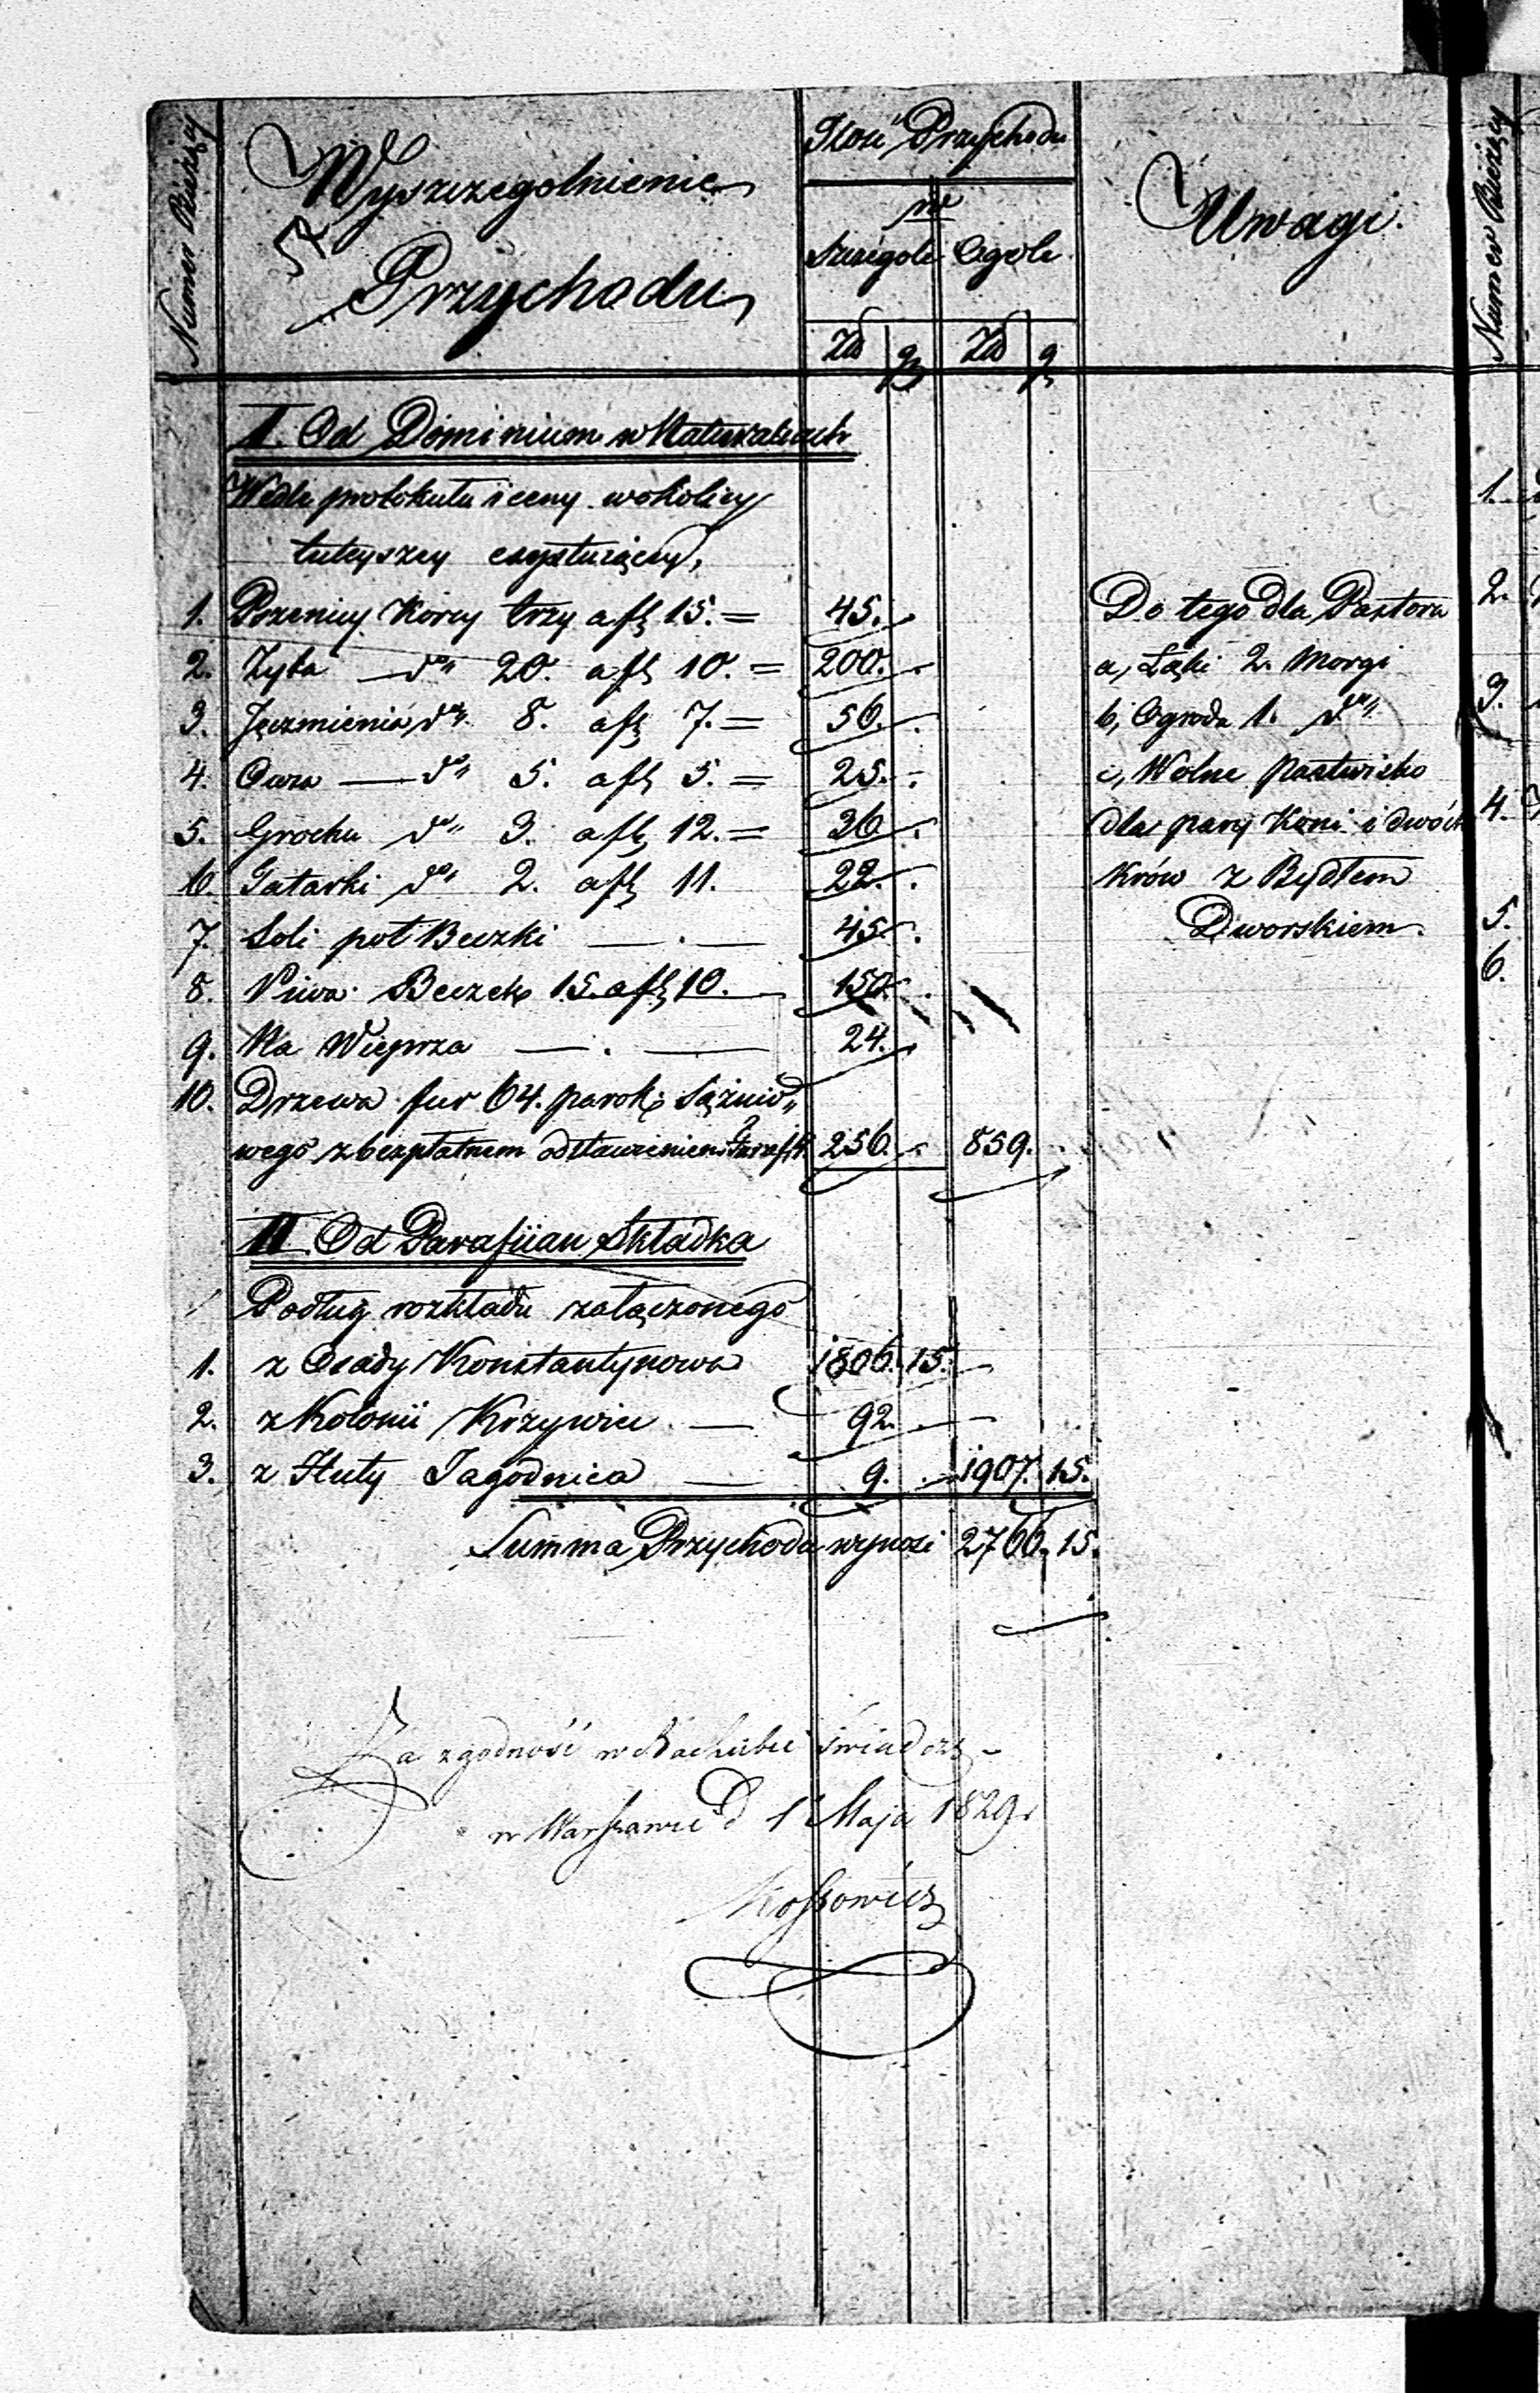 Numer Bieżący
Wyszczegolnienie
Przychodu
Ilość Przychodu
w
Szczegole Ogole
Zł gr Zł gr
Uwagi.
I. Od Dominium w Naturaliach
Wedle protokułu i ceny w okolicy
tuteyszey exystuiącey,
1. Pszenicy Korcy trzy a fl 15. = 45. Do tego dla Pastora
2. Żyta — do 20. a fl 10. = 200. a, Łąki 2. Morgi
3. Jęczmienia do 8. a fl 7. = 56. b, Ogrodu 1. do
4. Owsa — do 5. a fl 5. = 25. c, Wolne pastwisko
5. Grochu do 3. a fl 12. = 36. dla pary Koni i dwóch
6. Tatarki do 2. a fl 11. 22. Krów z Bydłem
7. Soli poł Beczki — . — 45. Dworskiem.
8. Piwa Beczek 15. a fl 10. — 150.
9. Na Wieprza — . — 24.
10. Drzewa fur 64. parok: Sążnio„
wego z bezpłatnem odstawieniem 256. 859.
II. Od Parafiian Składka
Podług rozkładu załączonego
1. z Osady Konstantynowa 1806. 15.
2. z Kolonii Krzywiec — 92. —
3. z Huty Jagodnica — 9. — 1907. 15.
Summa Przychodu wynosi 2766. 15.
Za zgodność w Rachubie świadczy
w Warszawie d 1 Maja 1829 r
Kossowicz
Numer Bieżący
1.
2.
3.
4.
5.
6.